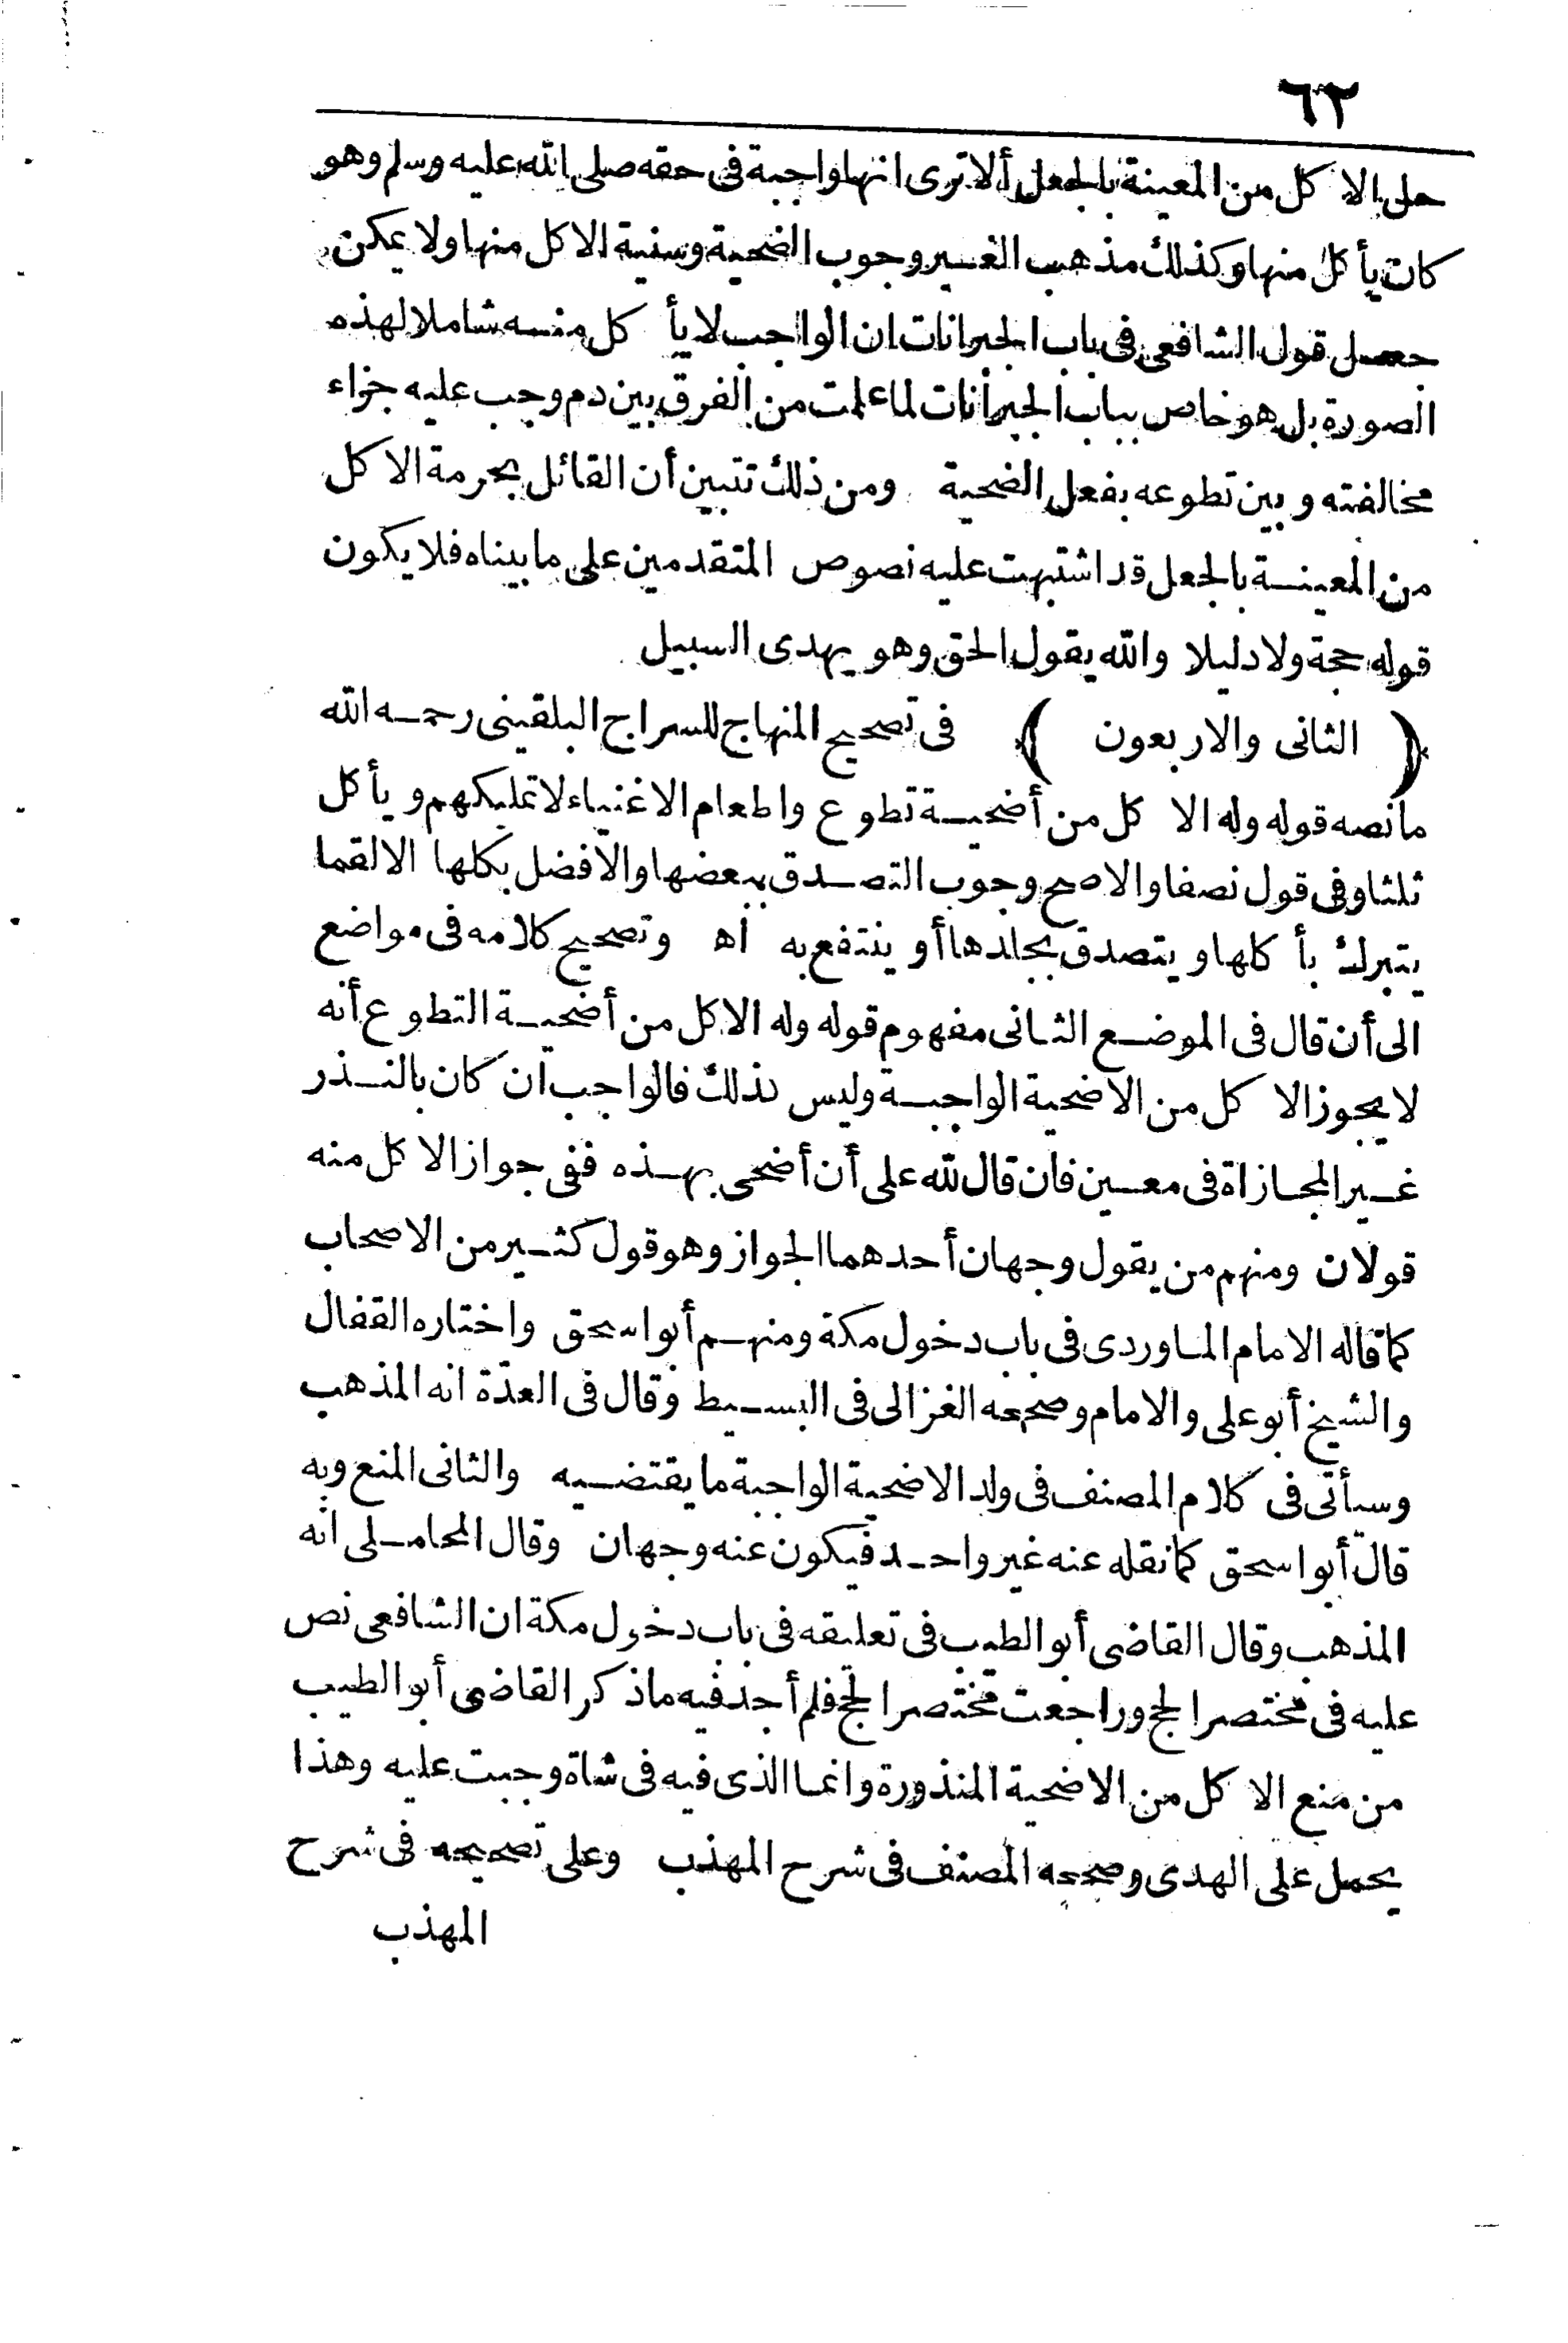 ٦٢
حل الاكل من المعينة بالجعل ألا ترى انها واجبة فى حقه صلى الله عليه وسلم وهو
كان يأكل منها وكذلك مذهب الغير وجوب الضحية وسنية الاكل منها ولا يمكن
جعل قول الشافعى فى باب الجبرانات ان الواجب لا يأكل منه شاملا لهذه
الصورة بل هو خاص بباب الجبرانات لما علمت من الفرق بين دم وجب عليه جزاء
مخالفته وبين تطوعه بفعل الضحية ومن ذلك تتبين أن القائل بحرمة الاكل
من المعينة بالجعل قد اشتبهت عليه نصوص المتقدمين على ما بيناه فلا يكون
قوله حجة ولا دليلا والله يقول الحق وهو يهدى السبيل
﴿ الثانى والاربعون ﴾ فى تصحيح المنهاج للسراج البلقينى رحمه الله
ما نصه قوله وله الاكل من أضحية تطوع واطعام الاغنياء لا تمليكهم ويأكل
ثلثا وفى قول نصفا والاصح وجوب التصدق ببعضها والافضل بكلها الا لقما
يتبرك بأكلها ويتصدق بجلدها أو ينتفع به اه وتصحيح كلامه فى مواضع
الى أن قال فى الموضع الثانى مفهوم قوله وله الاكل من أضحية التطوع أنه
لا يجوز الاكل من الاضحية الواجبة وليس كذلك فالواجب ان كان بالنذر
غير المجازاة فى معين فان قال لله على أن أضحى بهذه ففى جواز الاكل منه
قولان ومنهم من يقول وجهان أحدهما الجواز وهو قول كثير من الاصحاب
كما قاله الامام الماوردى فى باب دخول مكة ومنهم أبو اسحق واختاره القفال
والشيخ أبو على والامام وصححه الغزالى فى البسيط وقال فى العدّة انه المذهب
وسيأتى فى كلام المصنف فى ولد الاضحية الواجبة ما يقتضيه والثانى المنع وبه
قال أبو اسحق كما نقله عنه غير واحد فيكون عنه وجهان وقال المحاملى انه
المذهب وقال القاضى أبو الطيب فى تعليقه فى باب دخول مكة ان الشافعى نص
عليه فى مختصر الحج وراجعت مختصر الحج فلم أجد فيه ما ذكر القاضى أبو الطيب
من منع الاكل من الاضحية المنذورة وانما الذى فيه فى شاة وجبت عليه وهذا
يحمل على الهدى وصححه المصنف فى شرح المهذب وعلى تصحيحه فى شرح
المهذب